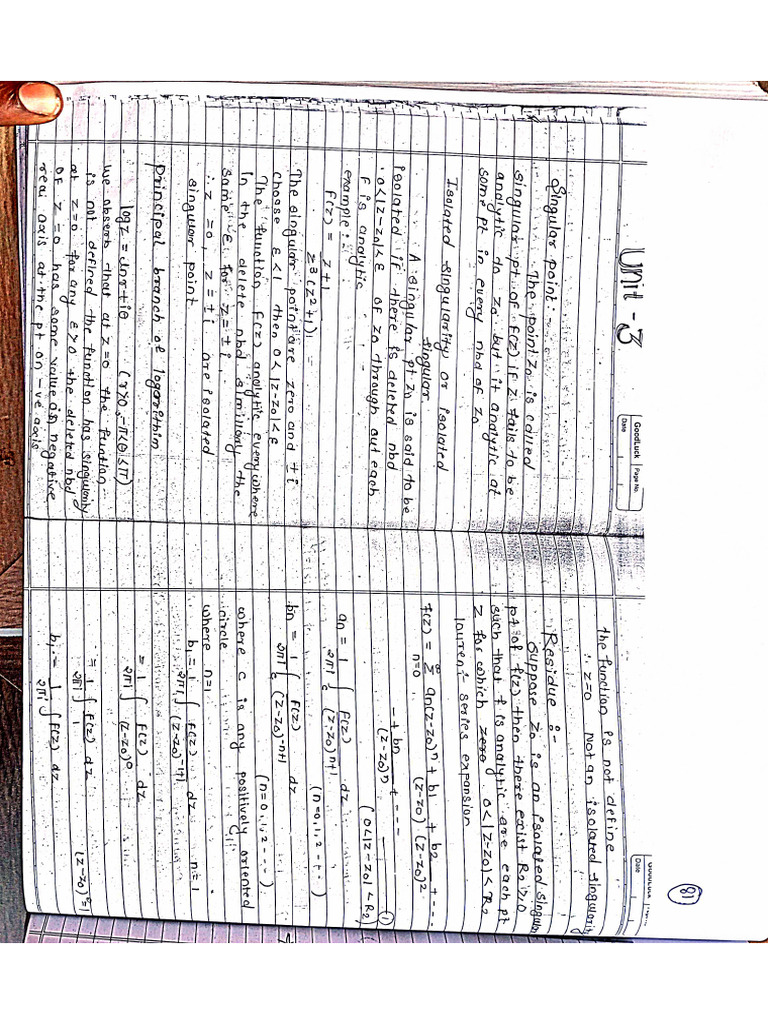 Unit - 3
GoodLuck Page No.
Date
Singular point:
The point z₀ is called
singular pt of f(z) if z fails to be
analytic to z₀ but it analytic at
some pt in every nbd of z₀
Isolated singularity or isolated
singular
A singular pt z₀ is said to be
isolated if there is deleted nbd
0<|z-z₀|<ε of z₀ through out each
F is analytic
example:
f(z) = z+1
z³(z²+1)
The singular point are zero and ±i
choose ε<1 then 0<|z-z₀|<ε
The function f(z) analytic everywhere
in the delete nbd similarly the
same ε for z=±i
∴ z=0, z=±i are isolated
singular point
Principal branch of logorithim
log z = ln r + iθ (r>0, -π<θ≤π)
we observb that at z=0 the funtion
is not defined the function has singularity
at z=0 for any ε>0 the deleted nbd
of z=0 has some value is negative
real axis at the pt on -ve axis
81
GoodLuck
Date
the function is not define
∴ z=0 Not an isolated singularity
Residue :-
Suppose z₀ is an isolated singular
pt of f(z) then there exist R₂>0
such that f is analytic are each pt
z for which zero 0<|z-z₀|<R₂
laurent series expansion
f(z) = ∞Σn=0 an(z-z₀)ⁿ + b1/(z-z₀) + b2/(z-z₀)² + ---
- + bn/(z-z₀)ⁿ + --- ①
(0<|z-z₀|<R₂)
an = 1/2πi ∫c f(z)/(z-z₀)ⁿ⁺¹ dz
(n=0,1,2 - - -)
bn = 1/2πi ∫c f(z)/(z-z₀)⁻ⁿ⁺¹ dz
(n=0,1,2 - - -)
where c is any positively oriented
circle
where n=1
b1 = 1/2πi ∫ f(z)/(z-z₀)⁻¹⁺¹ dz n=1
= 1/2πi ∫ f(z)/(z-z₀)⁰ dz
= 1/2πi ∫ f(z)/1 dz (z-z₀)⁰=1
b1 = 1/2πi ∫ f(z) dz